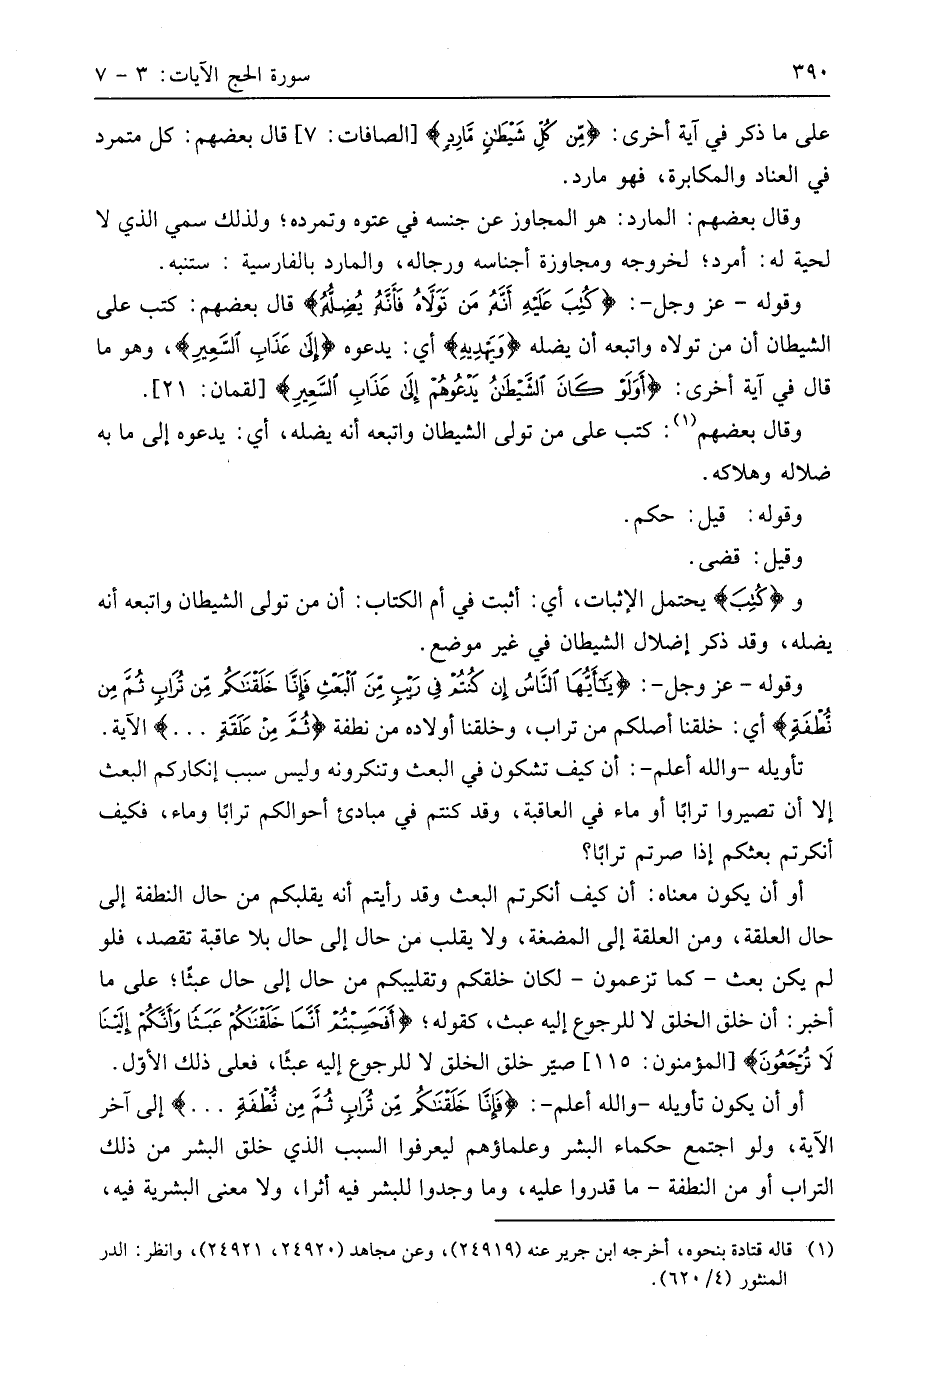 ٣٩٠ سورة الحج الآيات: ٣ - ٧
على ما ذكر في آية أخرى: ﴿مِّن كُلِّ شَيْطَٰنٍ مَّارِدٍ﴾ [الصافات: ٧] قال بعضهم: كل متمرد
في العناد والمكابرة، فهو مارد.
وقال بعضهم: المارد: هو المجاوز عن جنسه في عتوه وتمرده؛ ولذلك سمي الذي لا
لحية له: أمرد؛ لخروجه ومجاوزة أجناسه ورجاله، والمارد بالفارسية : ستنبه.
وقوله - عز وجل-: ﴿كُتِبَ عَلَيْهِ أَنَّهُۥ مَن تَوَلَّاهُ فَأَنَّهُۥ يُضِلُّهُۥ﴾ قال بعضهم: كتب على
الشيطان أن من تولاه واتبعه أن يضله ﴿وَيَهْدِيهِ﴾ أي: يدعوه ﴿إِلَىٰ عَذَابِ ٱلسَّعِيرِ﴾، وهو ما
قال في آية أخرى: ﴿أَوَلَوْ كَانَ ٱلشَّيْطَٰنُ يَدْعُوهُمْ إِلَىٰ عَذَابِ ٱلسَّعِيرِ﴾ [لقمان: ٢١].
وقال بعضهم(١): كتب على من تولى الشيطان واتبعه أنه يضله، أي: يدعوه إلى ما به
ضلاله وهلاكه.
وقوله: قيل: حكم.
وقيل: قضى.
و ﴿كُتِبَ﴾ يحتمل الإثبات، أي: أثبت في أم الكتاب: أن من تولى الشيطان واتبعه أنه
يضله، وقد ذكر إضلال الشيطان في غير موضع.
وقوله - عز وجل-: ﴿يَٰٓأَيُّهَا ٱلنَّاسُ إِن كُنتُمْ فِى رَيْبٍ مِّنَ ٱلْبَعْثِ فَإِنَّا خَلَقْنَٰكُم مِّن تُرَابٍ ثُمَّ مِن
نُّطْفَةٍ﴾ أي: خلقنا أصلكم من تراب، وخلقنا أولاده من نطفة ﴿ثُمَّ مِنْ عَلَقَةٍ ...﴾ الآية.
تأويله -والله أعلم-: أن كيف تشكون في البعث وتنكرونه وليس سبب إنكاركم البعث
إلا أن تصيروا ترابًا أو ماء في العاقبة، وقد كنتم في مبادئ أحوالكم ترابًا وماء، فكيف
أنكرتم بعثكم إذا صرتم ترابًا؟
أو أن يكون معناه: أن كيف أنكرتم البعث وقد رأيتم أنه يقلبكم من حال النطفة إلى
حال العلقة، ومن العلقة إلى المضغة، ولا يقلب من حال إلى حال بلا عاقبة تقصد، فلو
لم يكن بعث - كما تزعمون - لكان خلقكم وتقليبكم من حال إلى حال عبثًا؛ على ما
أخبر: أن خلق الخلق لا للرجوع إليه عبث، كقوله؛ ﴿أَفَحَسِبْتُمْ أَنَّمَا خَلَقْنَٰكُمْ عَبَثًا وَأَنَّكُمْ إِلَيْنَا
لَا تُرْجَعُونَ﴾ [المؤمنون: ١١٥] صيّر خلق الخلق لا للرجوع إليه عبثًا، فعلى ذلك الأوّل.
أو أن يكون تأويله -والله أعلم-: ﴿فَإِنَّا خَلَقْنَٰكُم مِّن تُرَابٍ ثُمَّ مِن نُّطْفَةٍ ...﴾ إلى آخر
الآية، ولو اجتمع حكماء البشر وعلماؤهم ليعرفوا السبب الذي خلق البشر من ذلك
التراب أو من النطفة - ما قدروا عليه، وما وجدوا للبشر فيه أثرا، ولا معنى البشرية فيه،
(١) قاله قتادة بنحوه، أخرجه ابن جرير عنه (٢٤٩١٩)، وعن مجاهد (٢٤٩٢٠، ٢٤٩٢١)، وانظر: الدر
المنثور (٤/ ٦٢٠).